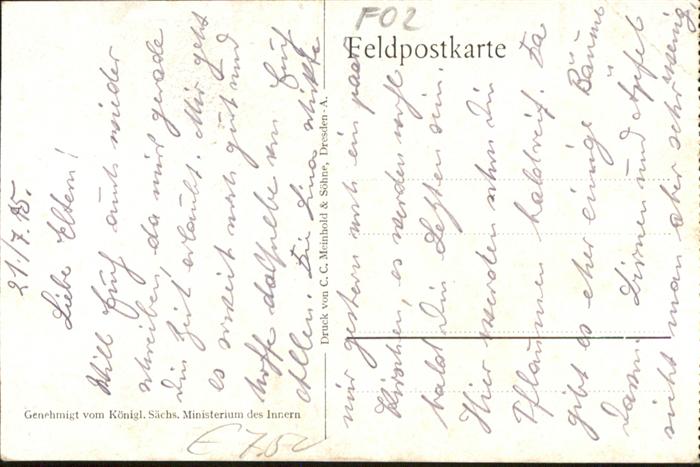 F02
Feldpostkarte
21./7.15.
Liebe Eltern!
Will Euch auch wieder
schreiben, da mir gerade
die Zeit erlaubt. Mir geht
es soweit noch gut und
hoffe dasselbe von Euch
Allen. Die Lina schickte
mir gestern noch ein paar
Kirschen, es werden wohl
bald die Letzten sein.
Hier werden schon die
Pflaumen bald reif. Da
gibt es eher einige Bäume
davon. Birnen und Äpfel
sieht man aber sehr wenig
Druck von C. C. Meinhold & Söhne, Dresden-A.
Genehmigt vom Königl. Sächs. Ministerium des Innern
€ 7,50